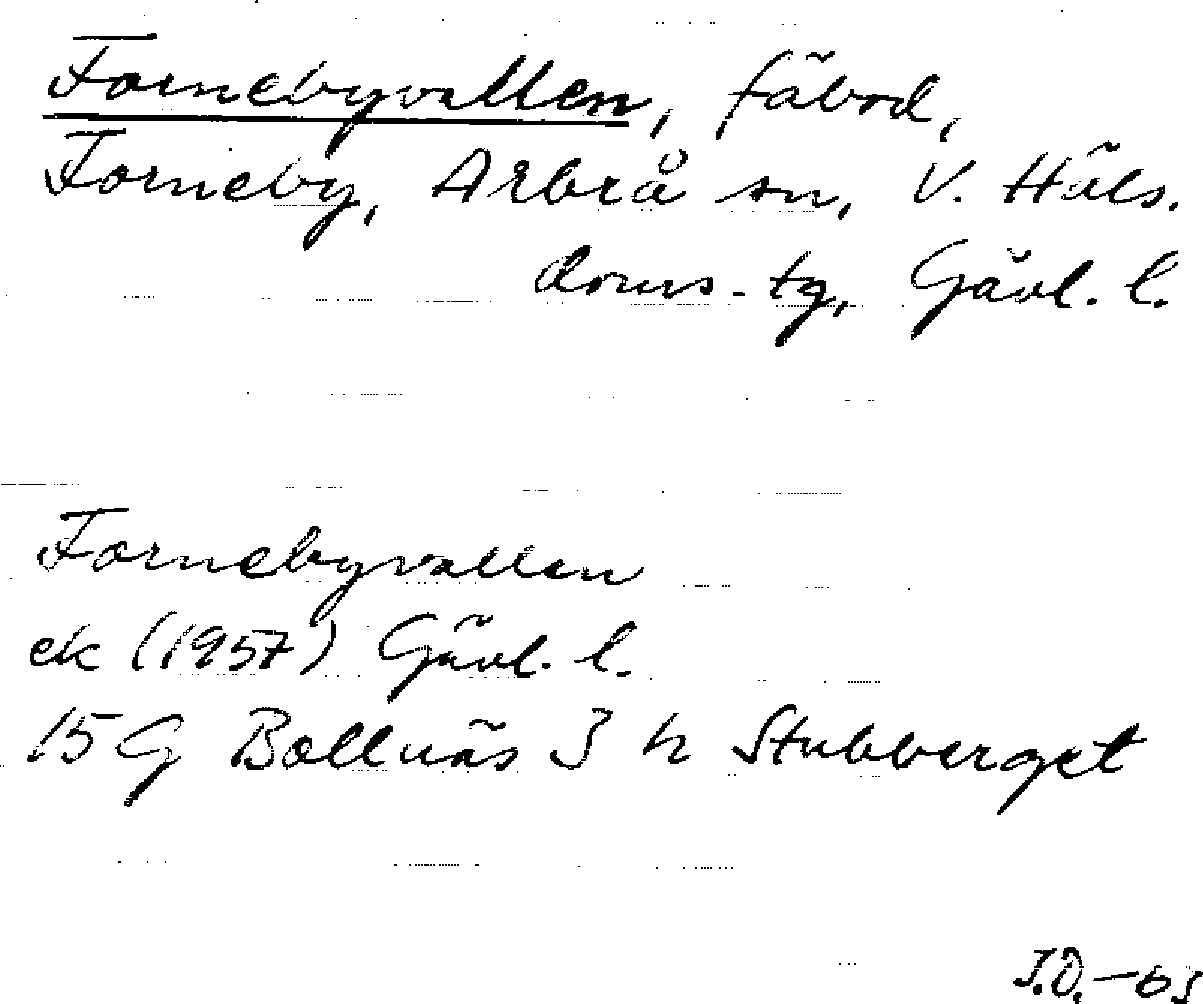 Fornebyvallen, fäbod,
Forneby, Arbrå sn, V. Häls.
doms. tg, Gävl. l.
Fornebyvallen
ek (1957) Gävl. l.
15 G Bollnäs 3 h Stubberget